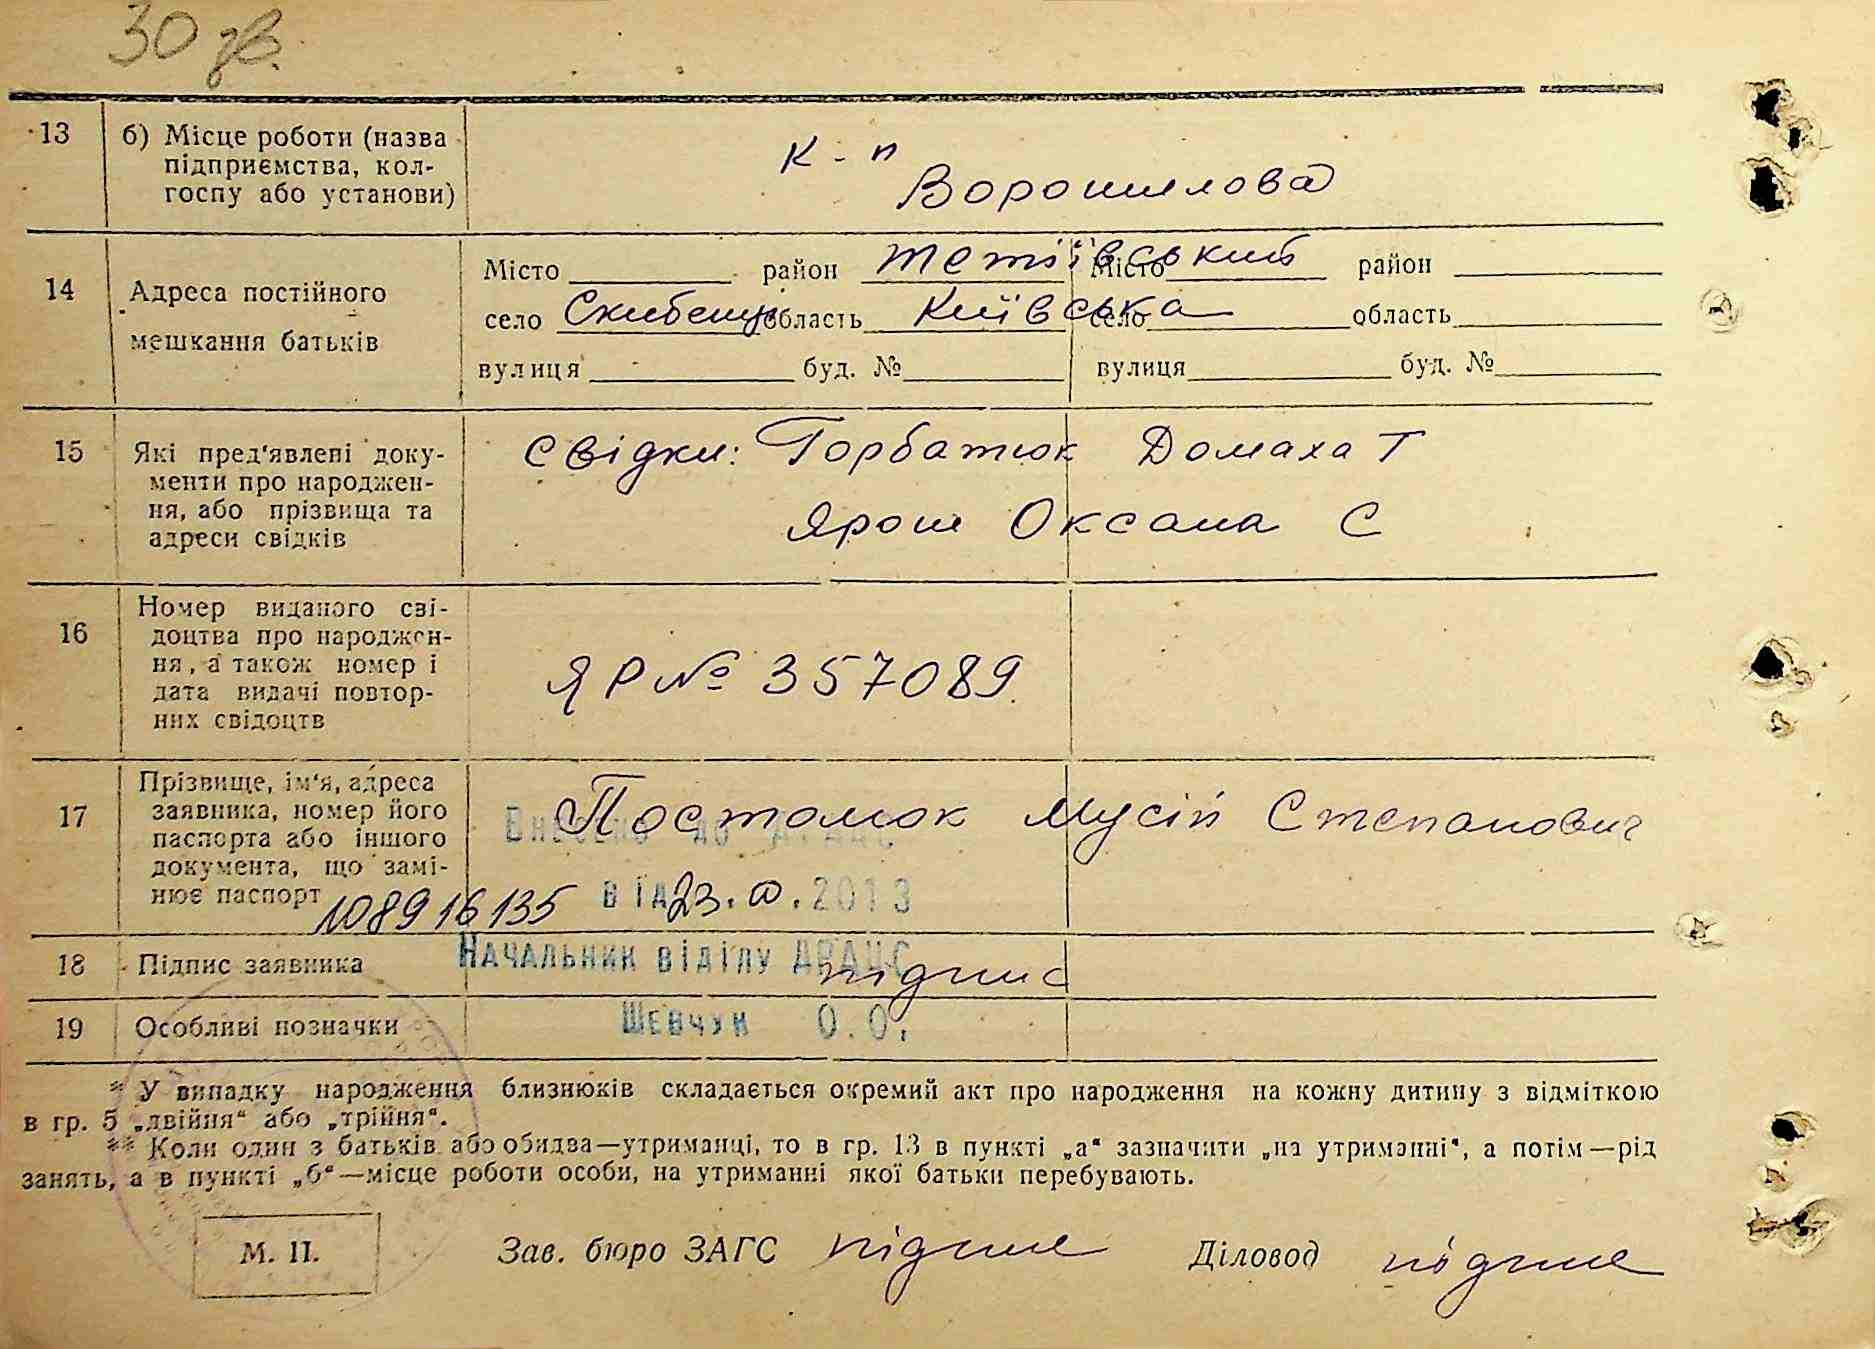 30 зв.
13 б) Місце роботи (назва підприємства, колгоспу або установи)
к-п
Ворошилова
14 Адреса постійного мешкання батьків
Місто район Тетіївський Місто район
село Скибенці область Київська село область
вулиця буд. № вулиця буд. №
15 Які пред'явлені документи про народження, або прізвища та адреси свідків
Свідки: Горбатюк Домаха Т
Ярош Оксана С
16 Номер виданого свідоцтва про народження, а також номер і дата видачі повторних свідоцтв
ЯР № 357089.
17 Прізвище, ім'я, адреса заявника, номер його паспорта або іншого документа, що замінює паспорт
Постолюк Мусій Степанович
Внесено до ДРАЦС
108916135 від 23. . 2013
18 Підпис заявника підпис
Начальник відділу ДРАЦС
19 Особливі позначки
Шевчук О.О.
* У випадку народження близнюків складається окремий акт про народження на кожну дитину з відміткою
в гр. 5 „двійня“ або „трійня“.
** Коли один з батьків або обидва—утриманці, то в гр. 13 в пункті „а“ зазначити „на утриманні“, а потім—рід
занять, а в пункті „б“—місце роботи особи, на утриманні якої батьки перебувають.
М. П. Зав. бюро ЗАГС підпис Діловод підпис